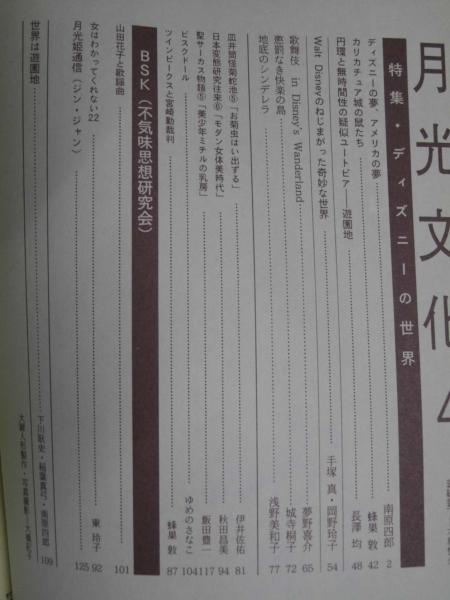 月光文化
特集 ディズニーの世界
ディズニーの夢、アメリカの夢……南原四郎 2
カリカチュア城の鼠たち……蜂巣 敦 42
円環と無時間性の疑似ユートピア——遊園地……長澤 均 48
Walt Disneyのねじまがった奇妙な世界……手塚 真・岡野玲子 54
歌舞伎 in Disney's Wanderland……夢野喜介 65
懲罰なき快楽の島……城寺桐子 72
地底のシンデレラ……浅野美和子 77
皿井筒怪菊蛇池⑤「お菊虫はい出ずる」……伊井佐佑 81
日本変態研究往来⑥「モダン女体美時代」……秋田昌美 94
聖サーカス物語⑤「美少年ミチルの乳房」……飯田豊一 117
ビスクドール……ゆめのさなこ 104
ツインピークスと宮崎勤裁判……蜂巣 敦 87
BSK（不気味思想研究会）
山田花子と歌謡曲……101
女はわかってくれない22……東 玲子 92
月光姫通信（ジン・ジャン）……125
世界は遊園地……下川耿史・稲葉真弓・南原四郎 109
人形製作・写真撮影・大橋